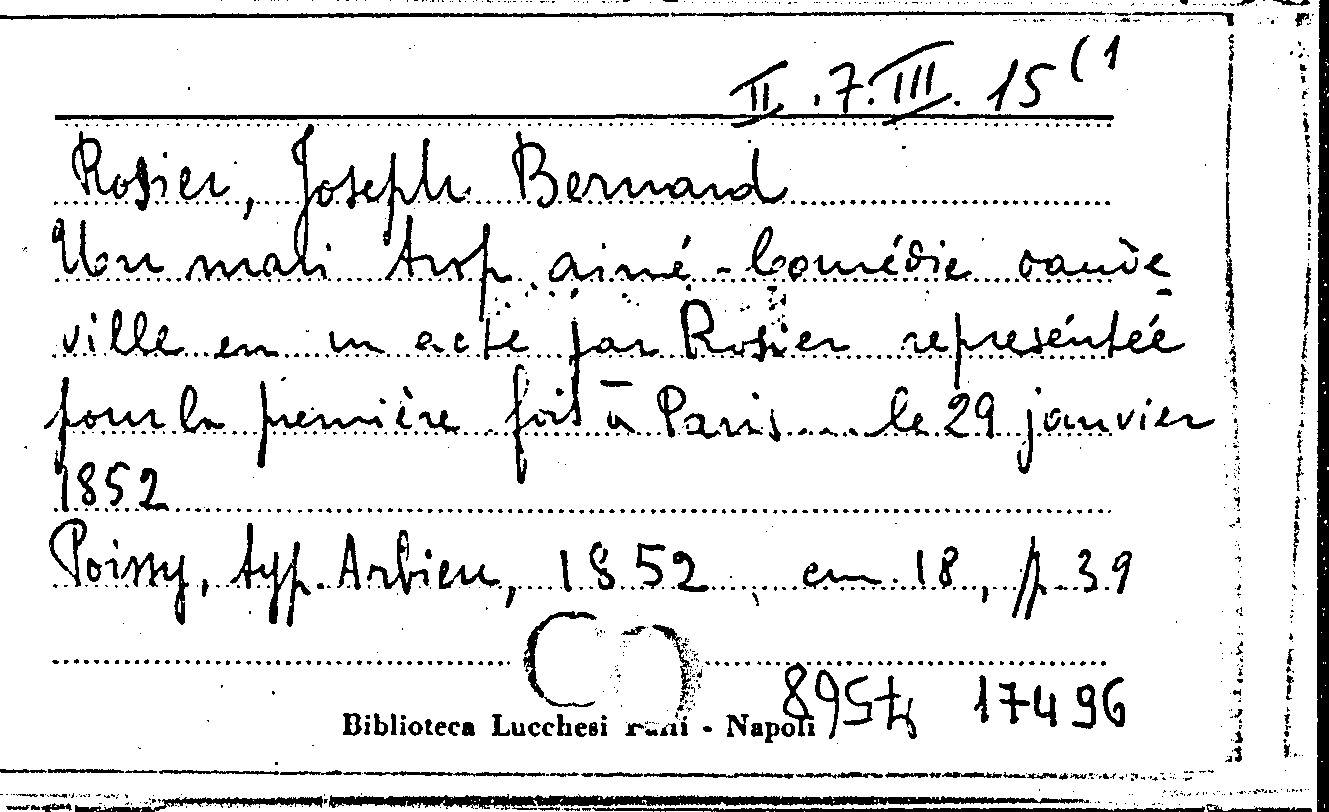 II.7.III.15(1
Rosier, Joseph Bernard
Un mari trop aimé - Comédie vaude
ville en un acte par Rosier representée
pour la première fois à Paris... le 29 janvier
1852
Poissy, typ. Arbieu, 1852, cm. 18, p. 39
17496
Biblioteca Lucchesi Palli - Napoli